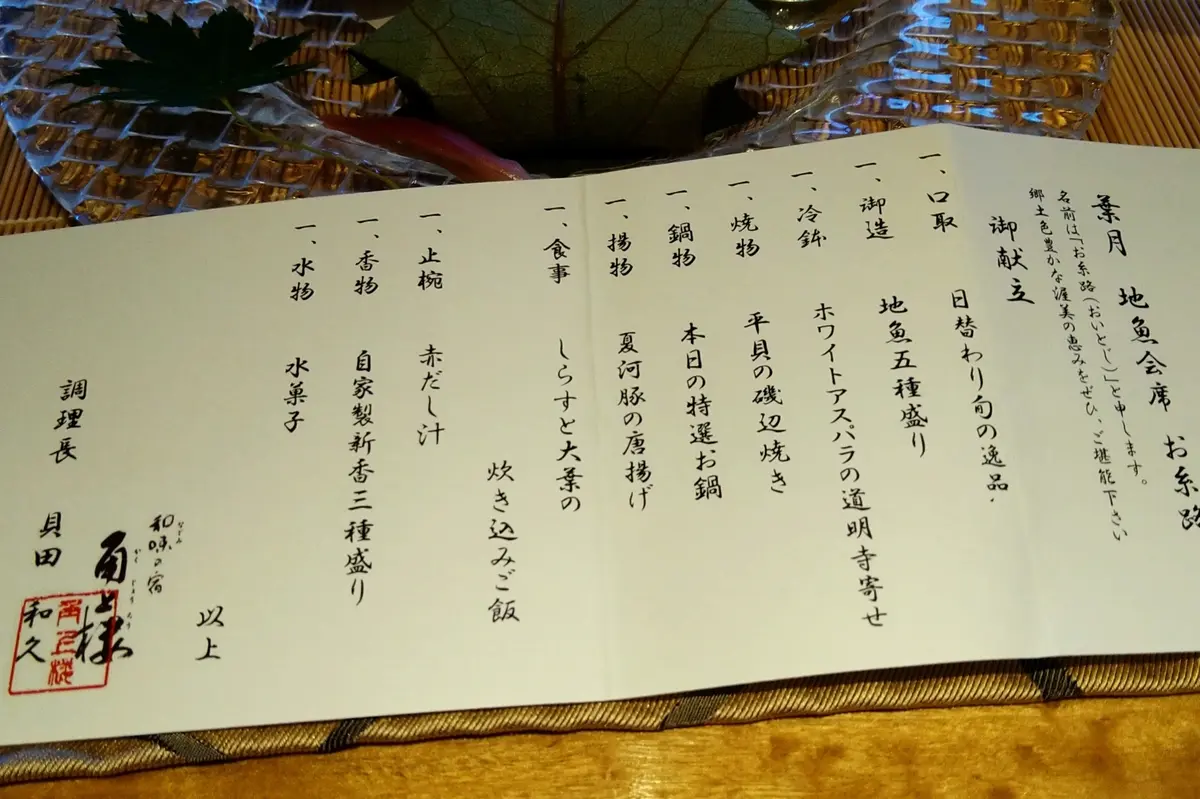 葉月　地魚会席　お糸路
名前は「お糸路（おいとじ）」と申します。
郷土色豊かな渥美の恵みをぜひ、ご堪能下さい
御献立
一、口取　日替わり旬の逸品
一、御造　地魚五種盛り
一、冷鉢　ホワイトアスパラの道明寺寄せ
一、焼物　平貝の磯辺焼き
一、鍋物　本日の特選お鍋
一、揚物　夏河豚の唐揚げ
一、食事　しらすと大葉の
炊き込みご飯
一、止椀　赤だし汁
一、香物　自家製新香三種盛り
一、水物　水菓子
以上
和味の宿
なごみ
角上楼
かくじょうろう
調理長　貝田　和久
角上楼